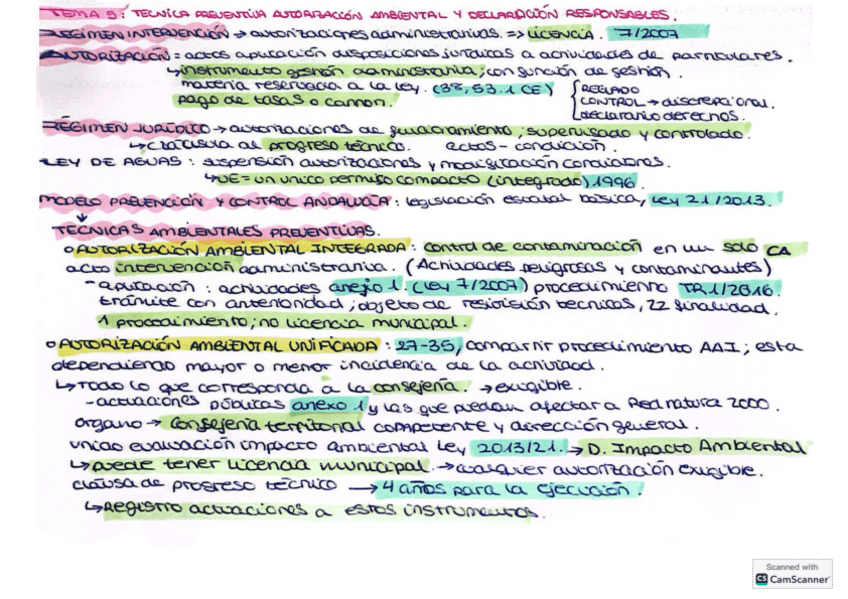 TEMA 5: TECNICA PREVENTIVA AUTORIZACIÓN AMBIENTAL Y DECLARACIÓN RESPONSABLES.
RÉGIMEN INTERVENCIÓN → autorizaciones administrativas. => licencia. 7/2007
AUTORIZACIÓN = actos aplicación disposiciones jurídicas a actividades de particulares.
↳ instrumento gestión administrativa, con función de gestión.
materia reservada a la ley. (38, 53.1 CE) { REGLADO
pago de tasas o canon. CONTROL → discrecional.
declarativo derechos.
RÉGIMEN JURÍDICO → autorizaciones de funcionamiento, supervisado y controlado.
↳ clausula al progreso técnico. actos - condición.
LEY DE AGUAS: suspensión autorizaciones y modificación condiciones.
↳ UE = un unico permiso compacto (integrado) 1996.
MODELO PREVENCIÓN Y CONTROL ANDALUCÍA: legislación estatal básica, ley 21/2013.
↓
TÉCNICAS AMBIENTALES PREVENTIVAS.
o AUTORIZACIÓN AMBIENTAL INTEGRADA: control de contaminación en un solo CA
acto intervención administrativa. (Actividades peligrosas y contaminantes)
- aplicación: actividades anejo 1. (Ley 7/2007) procedimiento TR.1/2016.
trámite con anterioridad, objeto de revisión técnicas, 22 finalidad.
1 procedimiento, no licencia municipal.
o AUTORIZACIÓN AMBIENTAL UNIFICADA: 27-35, compartir procedimiento AAI; esta
dependiendo mayor o menor incidencia de la actividad.
↳ Todo lo que corresponda a la consejería. → exigible.
- actuaciones públicas anexo 1 y las que puedan afectar a Red natura 2000.
órgano → Consejería territorial competente y dirección general.
unido evaluación impacto ambiental Ley 2013/21. → D. Impacto Ambiental
↳ puede tener licencia municipal. → cualquier autorización exigible.
clausa de progreso técnico → 4 años para la ejecución.
↳ Registro actuaciones a estos instrumentos.
Scanned with
CS CamScanner